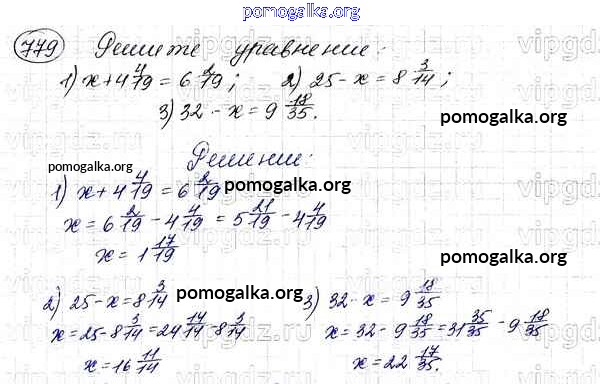 pomogalka.org
779 Решите уравнение:
1) x+4 4/19 = 6 2/19; 2) 25-x = 8 3/14;
3) 32-x = 9 18/35.
Решение:
pomogalka.org
1) x+4 4/19 = 6 2/19 pomogalka.org
x = 6 2/19 - 4 4/19 = 5 21/19 - 4 4/19
x = 1 17/19
pomogalka.org
2) 25-x = 8 3/14 pomogalka.org 3) 32-x = 9 18/35
x = 25-8 3/14 = 24 14/14 - 8 3/14 x = 32-9 18/35 = 31 35/35 - 9 18/35
x = 16 11/14 x = 22 17/35.
pomogalka.org